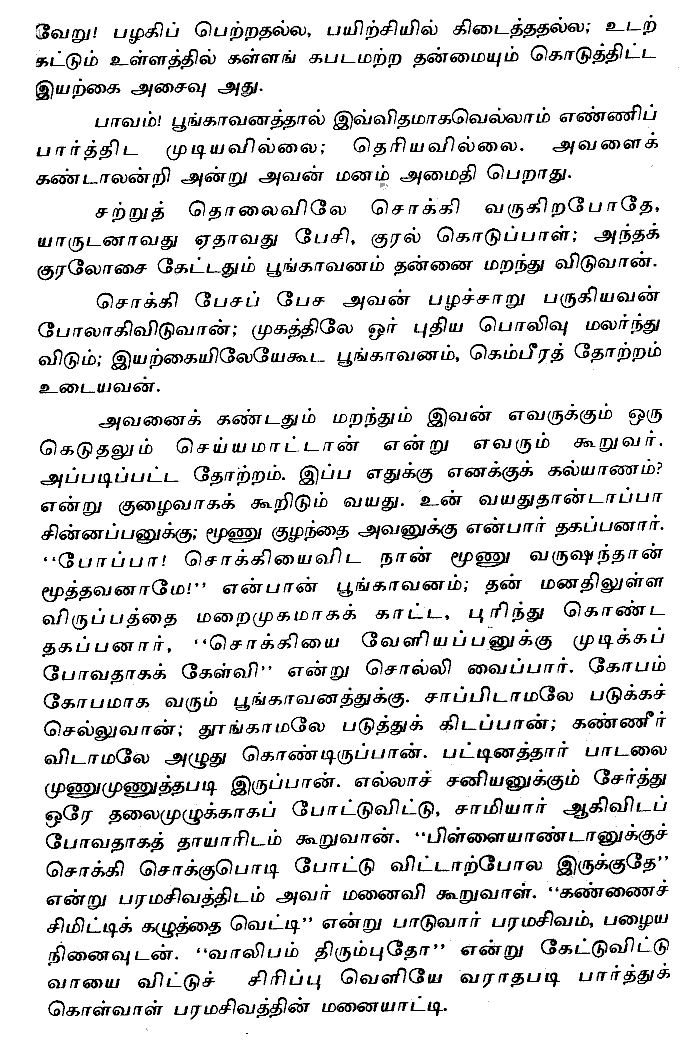 வேறு! பழகிப் பெற்றதல்ல, பயிற்சியில் கிடைத்ததல்ல; உடற்
கட்டும் உள்ளத்தில் கள்ளங் கபடமற்ற தன்மையும் கொடுத்திட்ட
இயற்கை அசைவு அது.
பாவம்! பூங்காவனத்தால் இவ்விதமாகவெல்லாம் எண்ணிப்
பார்த்திட முடியவில்லை; தெரியவில்லை. அவளைக்
கண்டாலன்றி அன்று அவன் மனம் அமைதி பெறாது.
சற்றுத் தொலைவிலே சொக்கி வருகிறபோதே,
யாருடனாவது ஏதாவது பேசி, குரல் கொடுப்பாள்; அந்தக்
குரலோசை கேட்டதும் பூங்காவனம் தன்னை மறந்து விடுவான்.
சொக்கி பேசப் பேச அவன் பழச்சாறு பருகியவன்
போலாகிவிடுவான்; முகத்திலே ஓர் புதிய பொலிவு மலர்ந்து
விடும்; இயற்கையிலேயேகூட பூங்காவனம், கெம்பீரத் தோற்றம்
உடையவன்.
அவனைக் கண்டதும் மறந்தும் இவன் எவருக்கும் ஒரு
கெடுதலும் செய்யமாட்டான் என்று எவரும் கூறுவர்.
அப்படிப்பட்ட தோற்றம். இப்ப எதுக்கு எனக்குக் கல்யாணம்?
என்று குழைவாகக் கூறிடும் வயது. உன் வயதுதான்டாப்பா
சின்னப்பனுக்கு; மூணு குழந்தை அவனுக்கு என்பார் தகப்பனார்.
“போப்பா! சொக்கியைவிட நான் மூணு வருஷந்தான்
மூத்தவனாமே!” என்பான் பூங்காவனம்; தன் மனதிலுள்ள
விருப்பத்தை மறைமுகமாகக் காட்ட, புரிந்து கொண்ட
தகப்பனார், “சொக்கியை வேளியப்பனுக்கு முடிக்கப்
போவதாகக் கேள்வி” என்று சொல்லி வைப்பார். கோபம்
கோபமாக வரும் பூங்காவனத்துக்கு. சாப்பிடாமலே படுக்கச்
செல்லுவான்; தூங்காமலே படுத்துக் கிடப்பான்; கண்ணீர்
விடாமலே அழுது கொண்டிருப்பான். பட்டினத்தார் பாடலை
முணுமுணுத்தபடி இருப்பான். எல்லாச் சனியனுக்கும் சேர்த்து
ஒரே தலைமுழுக்காகப் போட்டுவிட்டு, சாமியார் ஆகிவிடப்
போவதாகத் தாயாரிடம் கூறுவான். “பிள்ளையாண்டானுக்குச்
சொக்கி சொக்குபொடி போட்டு விட்டாற்போல இருக்குதே”
என்று பரமசிவத்திடம் அவர் மனைவி கூறுவாள். “கண்ணைச்
சிமிட்டிக் கழுத்தை வெட்டி” என்று பாடுவார் பரமசிவம், பழைய
நினைவுடன். “வாலிபம் திரும்புதோ” என்று கேட்டுவிட்டு
வாயை விட்டுச் சிரிப்பு வெளியே வராதபடி பார்த்துக்
கொள்வாள் பரமசிவத்தின் மனையாட்டி.